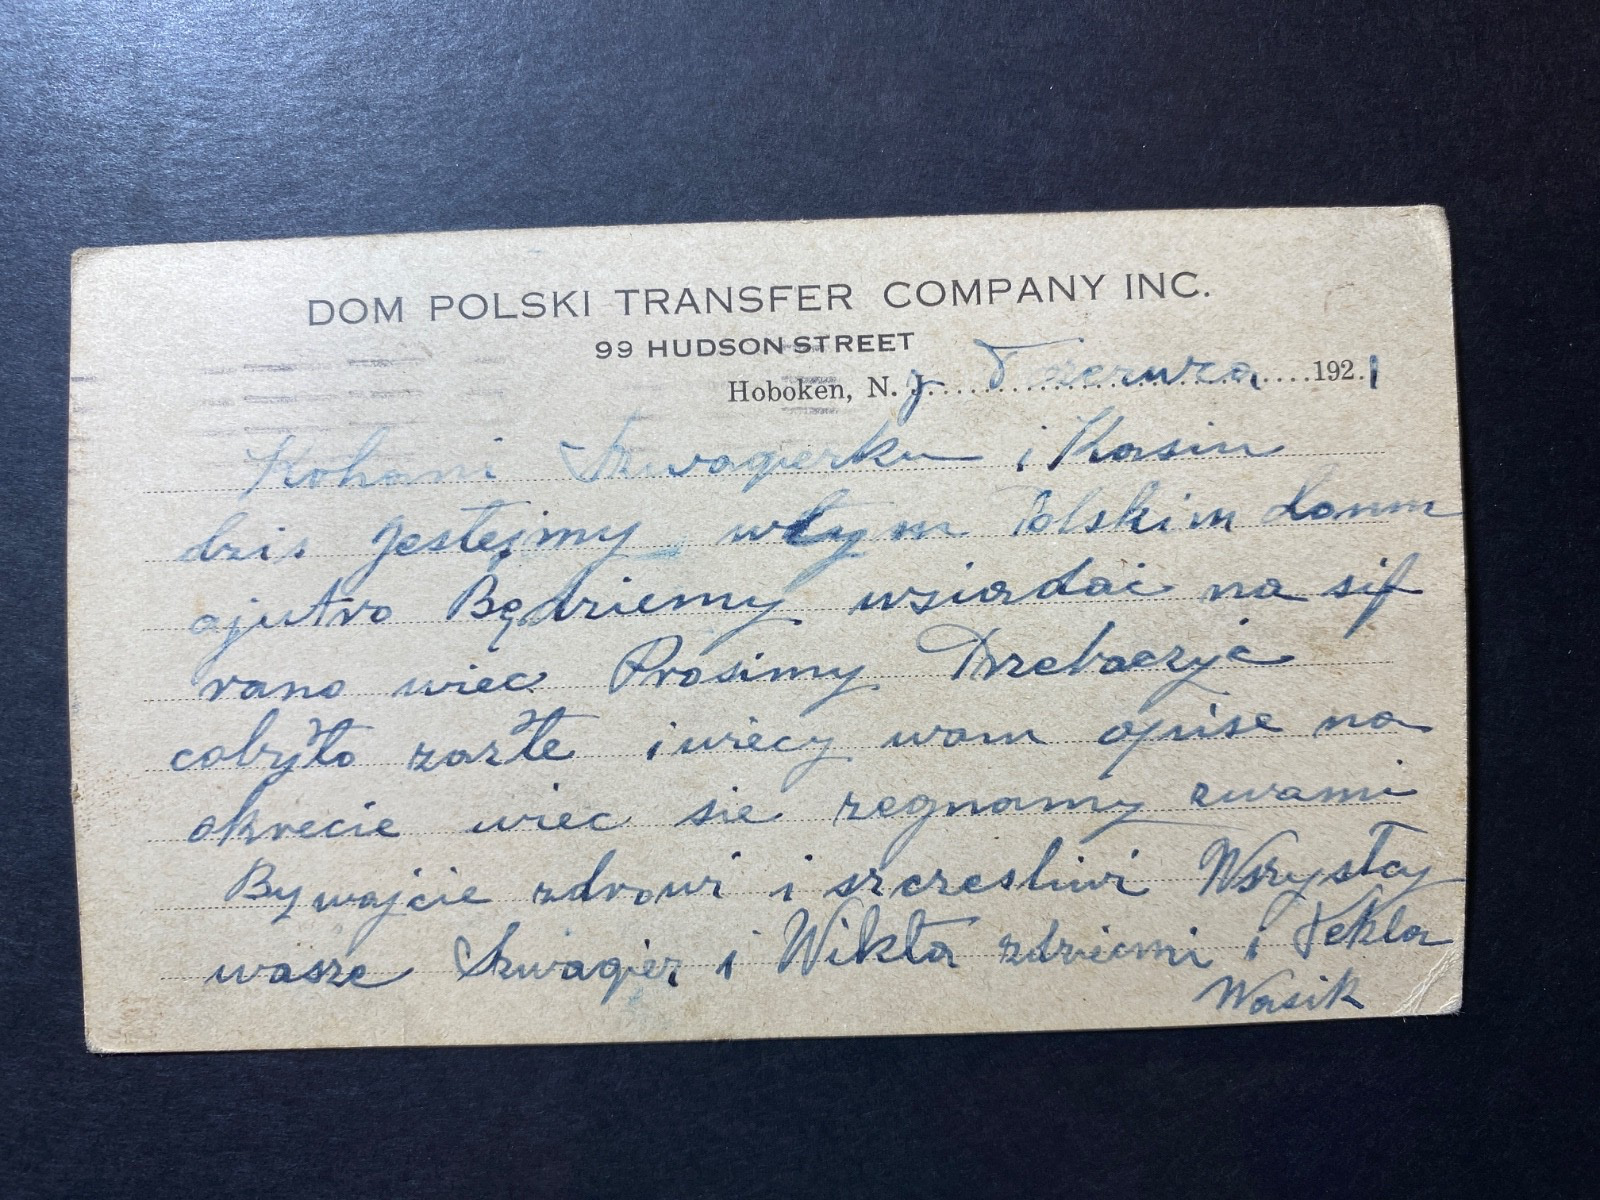 DOM POLSKI TRANSFER COMPANY INC.
99 HUDSON STREET
Hoboken, N. J. 1921
Kohani Szwagierku i Kasiu
dzis jestejmy wtym Polskim domu
ajutro Będziemy wsiadać na sif
rano wiec Prosimy Przebaczyć
cobyło zazłe iwiecy wam opise na
okrecie wiec sie zegnamy zwami
Bywajcie zdrowi i szczesliwi Wszystcy
wasze Szwagier i Wikta zdziemi i Tekla
Wasik